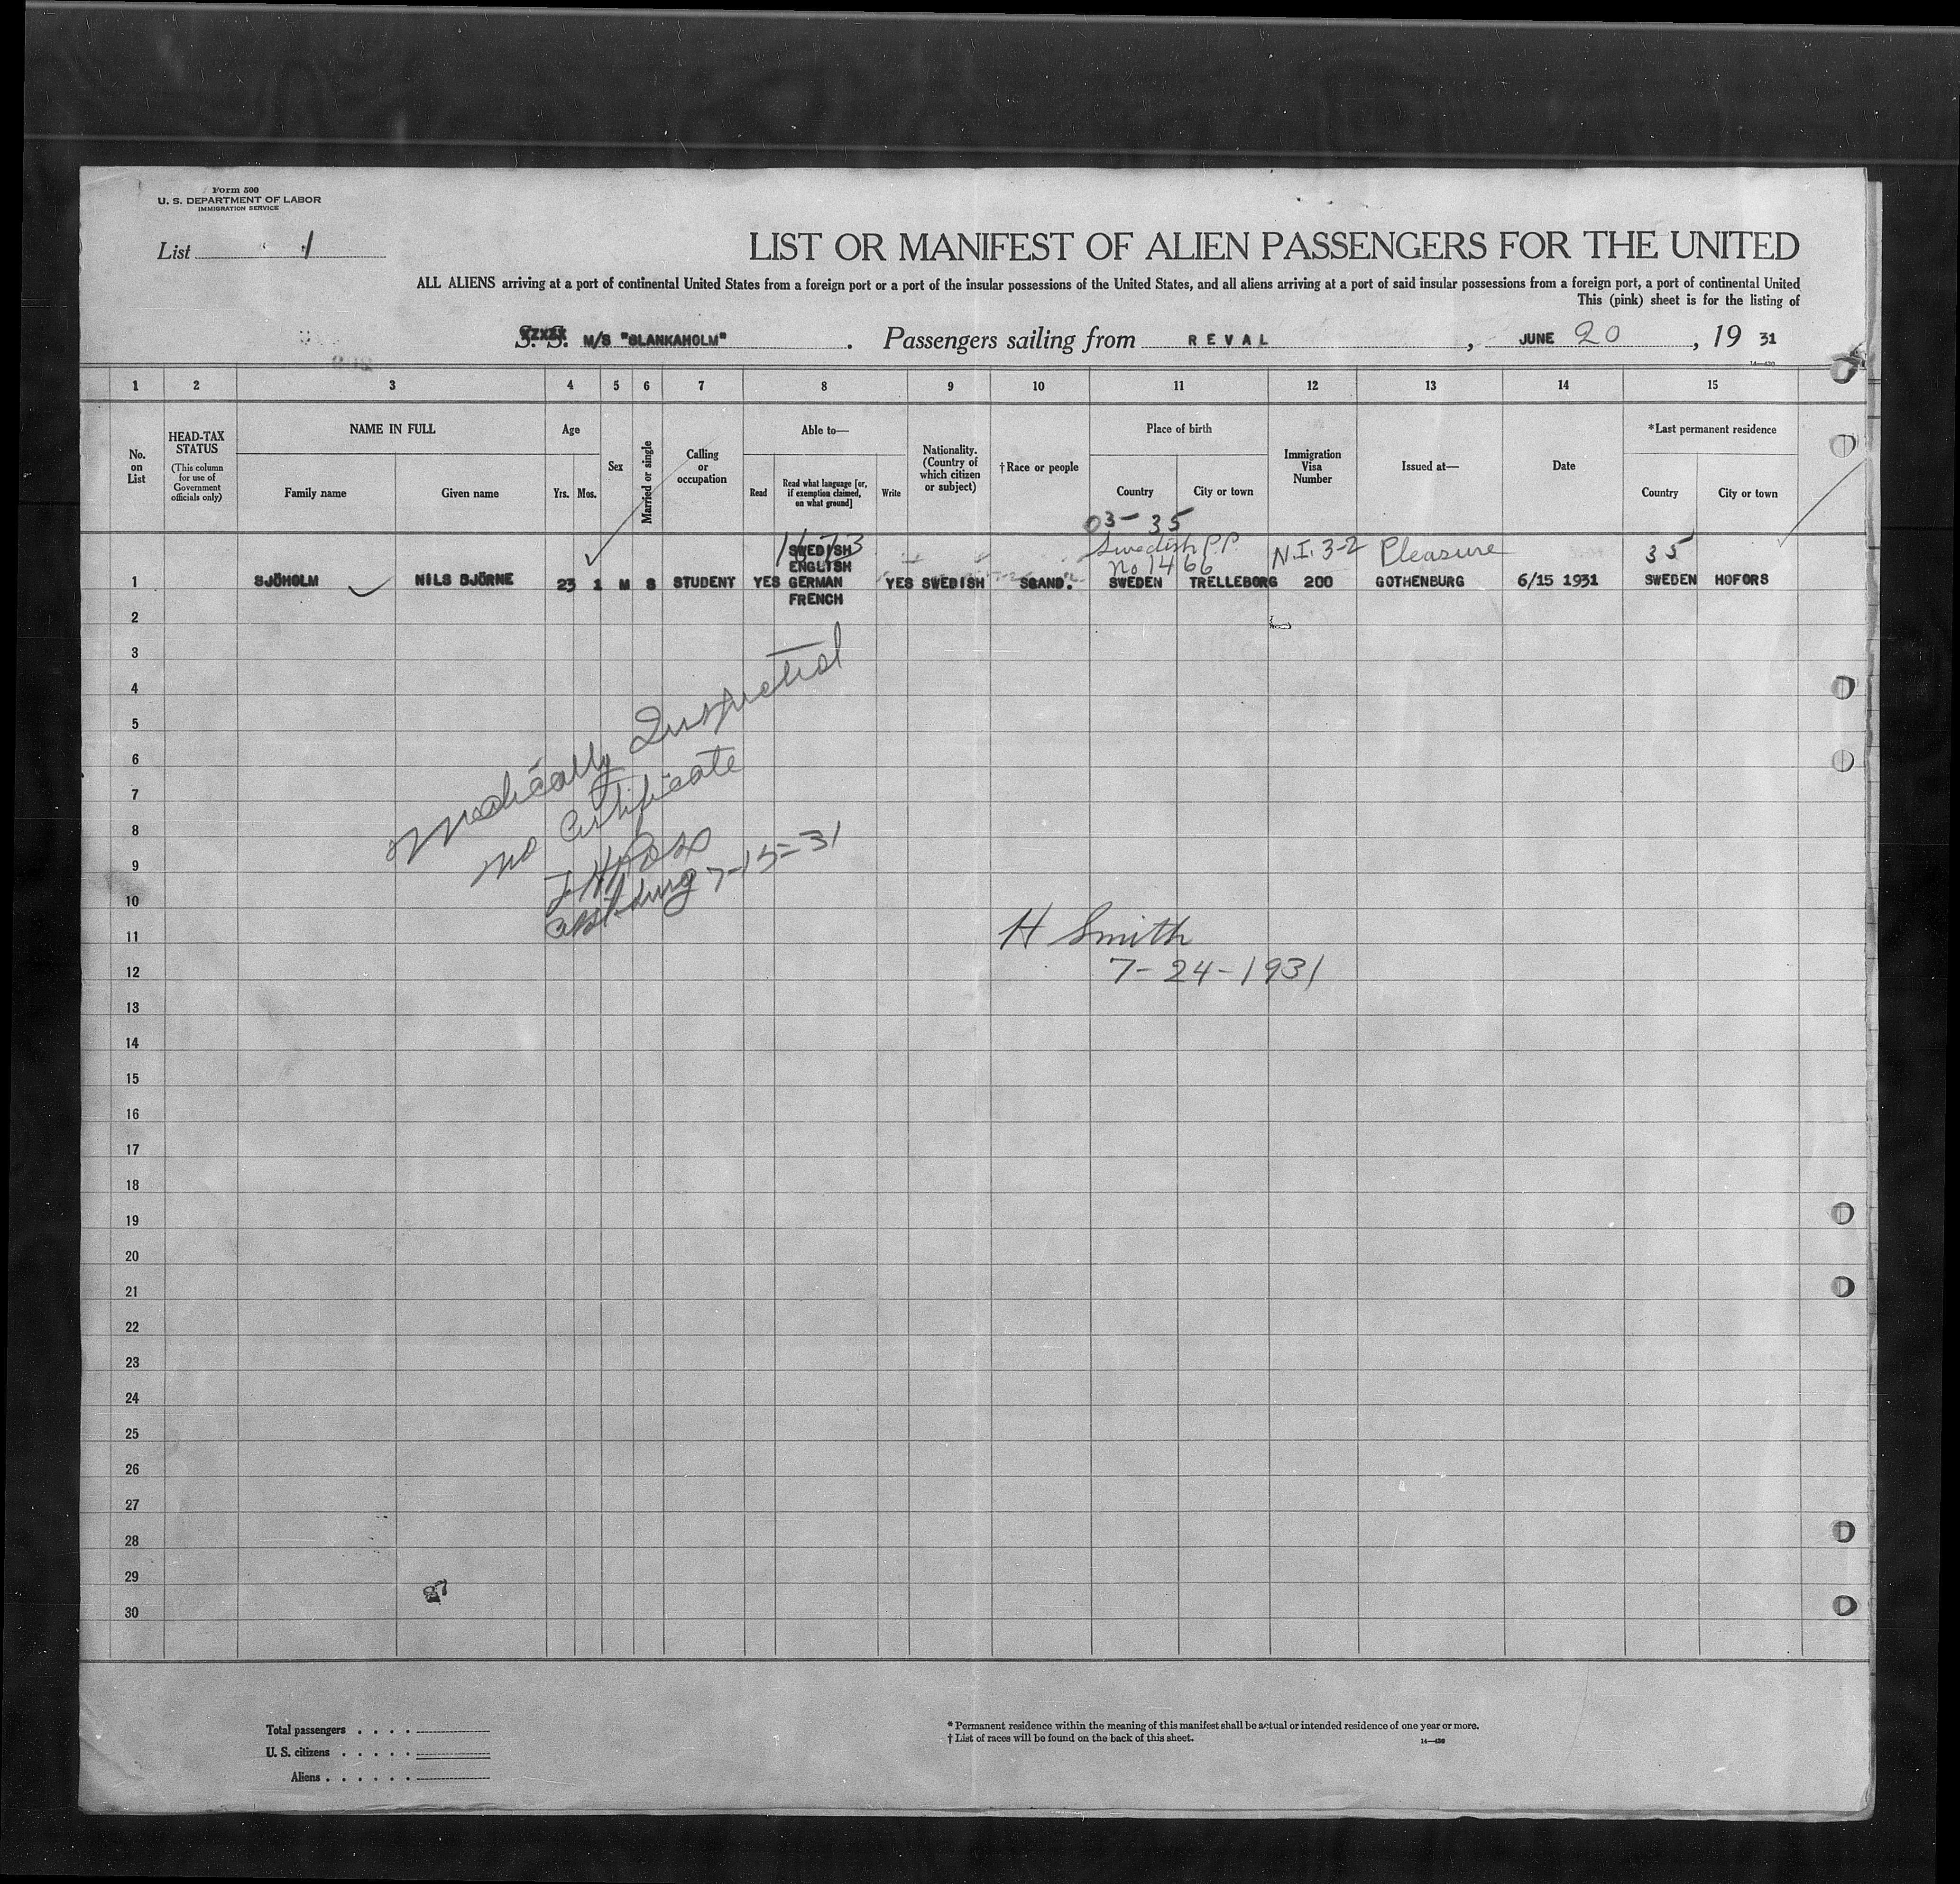 Form 500
U. S. DEPARTMENT OF LABOR
IMMIGRATION SERVICE
List 1
LIST OR MANIFEST OF ALIEN PASSENGERS FOR THE UNITED
ALL ALIENS arriving at a port of continental United States from a foreign port or a port of the insular possessions of the United States, and all aliens arriving at a port of said insular possessions from a foreign port, a port of continental United
This (pink) sheet is for the listing of
S. S. M/S "BLANKAHOLM". Passengers sailing from REVAL, JUNE 20, 19 31
14—430
1 2 3 4 5 6 7 8 9 10 11 12 13 14 15
No. on List
HEAD-TAX STATUS
(This column for use of Government officials only)
NAME IN FULL
Family name Given name
Age
Yrs. Mos.
Sex
Married or single
Calling or occupation
Able to—
Read
Read what language [or, if exemption claimed, on what ground]
Write
Nationality. (Country of which citizen or subject)
† Race or people
Place of birth
Country City or town
Immigration Visa Number
Issued at—
Date
*Last permanent residence
Country City or town
03- 35
Swedish P.P. N.I. 3-2 Pleasure 35
No 1466
SWEDISH
ENGLISH
1 SJÖHOLM NILS BJÖRNE 23 1 M S STUDENT YES GERMAN YES SWEDISH SCAND. SWEDEN TRELLEBORG 200 GOTHENBURG 6/15 1931 SWEDEN HOFORS
FRENCH
2
3
4
5
6
7
8
9
10
11
12
13
14
15
16
17
18
19
20
21
22
23
24
25
26
27
28
29
30
Medically Inspected
no Certificate
7-15-31
H Smith
7-24-1931
Total passengers . . . .
U. S. citizens . . . . .
Aliens . . . . . .
* Permanent residence within the meaning of this manifest shall be actual or intended residence of one year or more.
† List of races will be found on the back of this sheet.
14—430